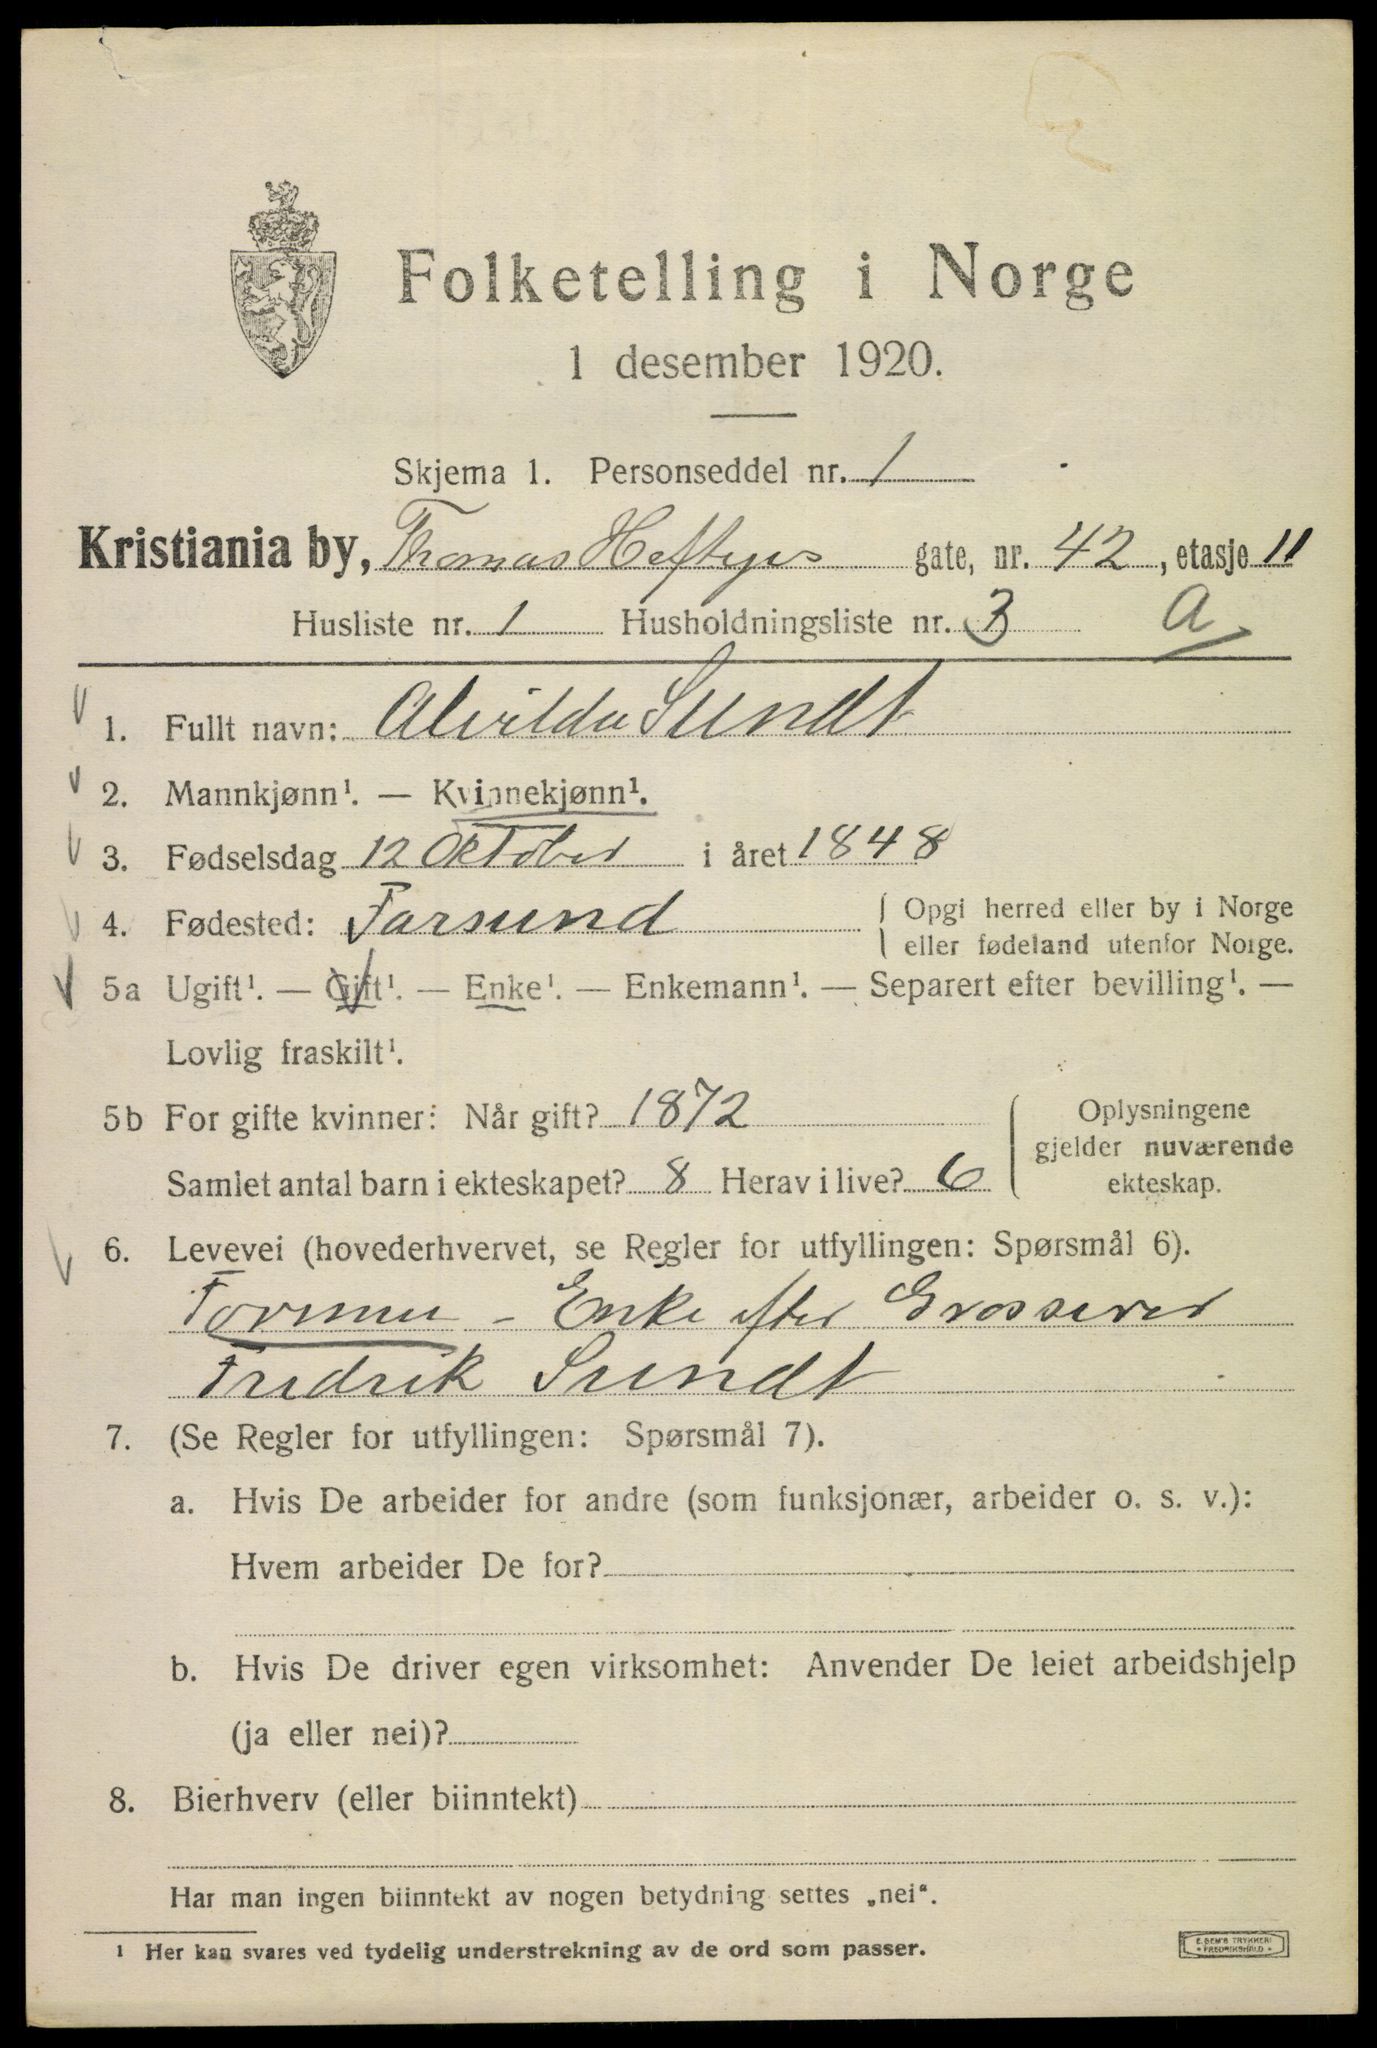 Folketelling i Norge
1 desember 1920.
Skjema 1. Personseddel nr. 1
Kristiania by, Thomas Heftyes gate, nr. 42, etasje 11
Husliste nr. 1 Husholdningsliste nr. 3 A
1. Fullt navn: Alvilda Sundt
2. Mannkjønn¹. — Kvinnekjønn¹.
3. Fødselsdag 12 Oktober i året 1848
4. Fødested: Farsund Opgi herred eller by i Norge
eller fødeland utenfor Norge.
5a Ugift¹. — Gift¹. — Enke¹. — Enkemann¹. — Separert efter bevilling¹. —
Lovlig fraskilt¹.
5b For gifte kvinner: Når gift? 1872 Oplysningene
gjelder nuværende
Samlet antal barn i ekteskapet? 8 Herav i live? 6 ekteskap.
6. Levevei (hovederhvervet, se Regler for utfyllingen: Spørsmål 6).
Formue - Enke efter Grosserer
Fredrik Sundt
7. (Se Regler for utfyllingen: Spørsmål 7).
a. Hvis De arbeider for andre (som funksjonær, arbeider o. s. v.):
Hvem arbeider De for?
b. Hvis De driver egen virksomhet: Anvender De leiet arbeidshjelp
(ja eller nei)?
8. Bierhverv (eller biinntekt)
Har man ingen biinntekt av nogen betydning settes „nei“.
¹ Her kan svares ved tydelig understrekning av de ord som passer.
E. SEM'S TRYKKERI
FREDRIKSHALD